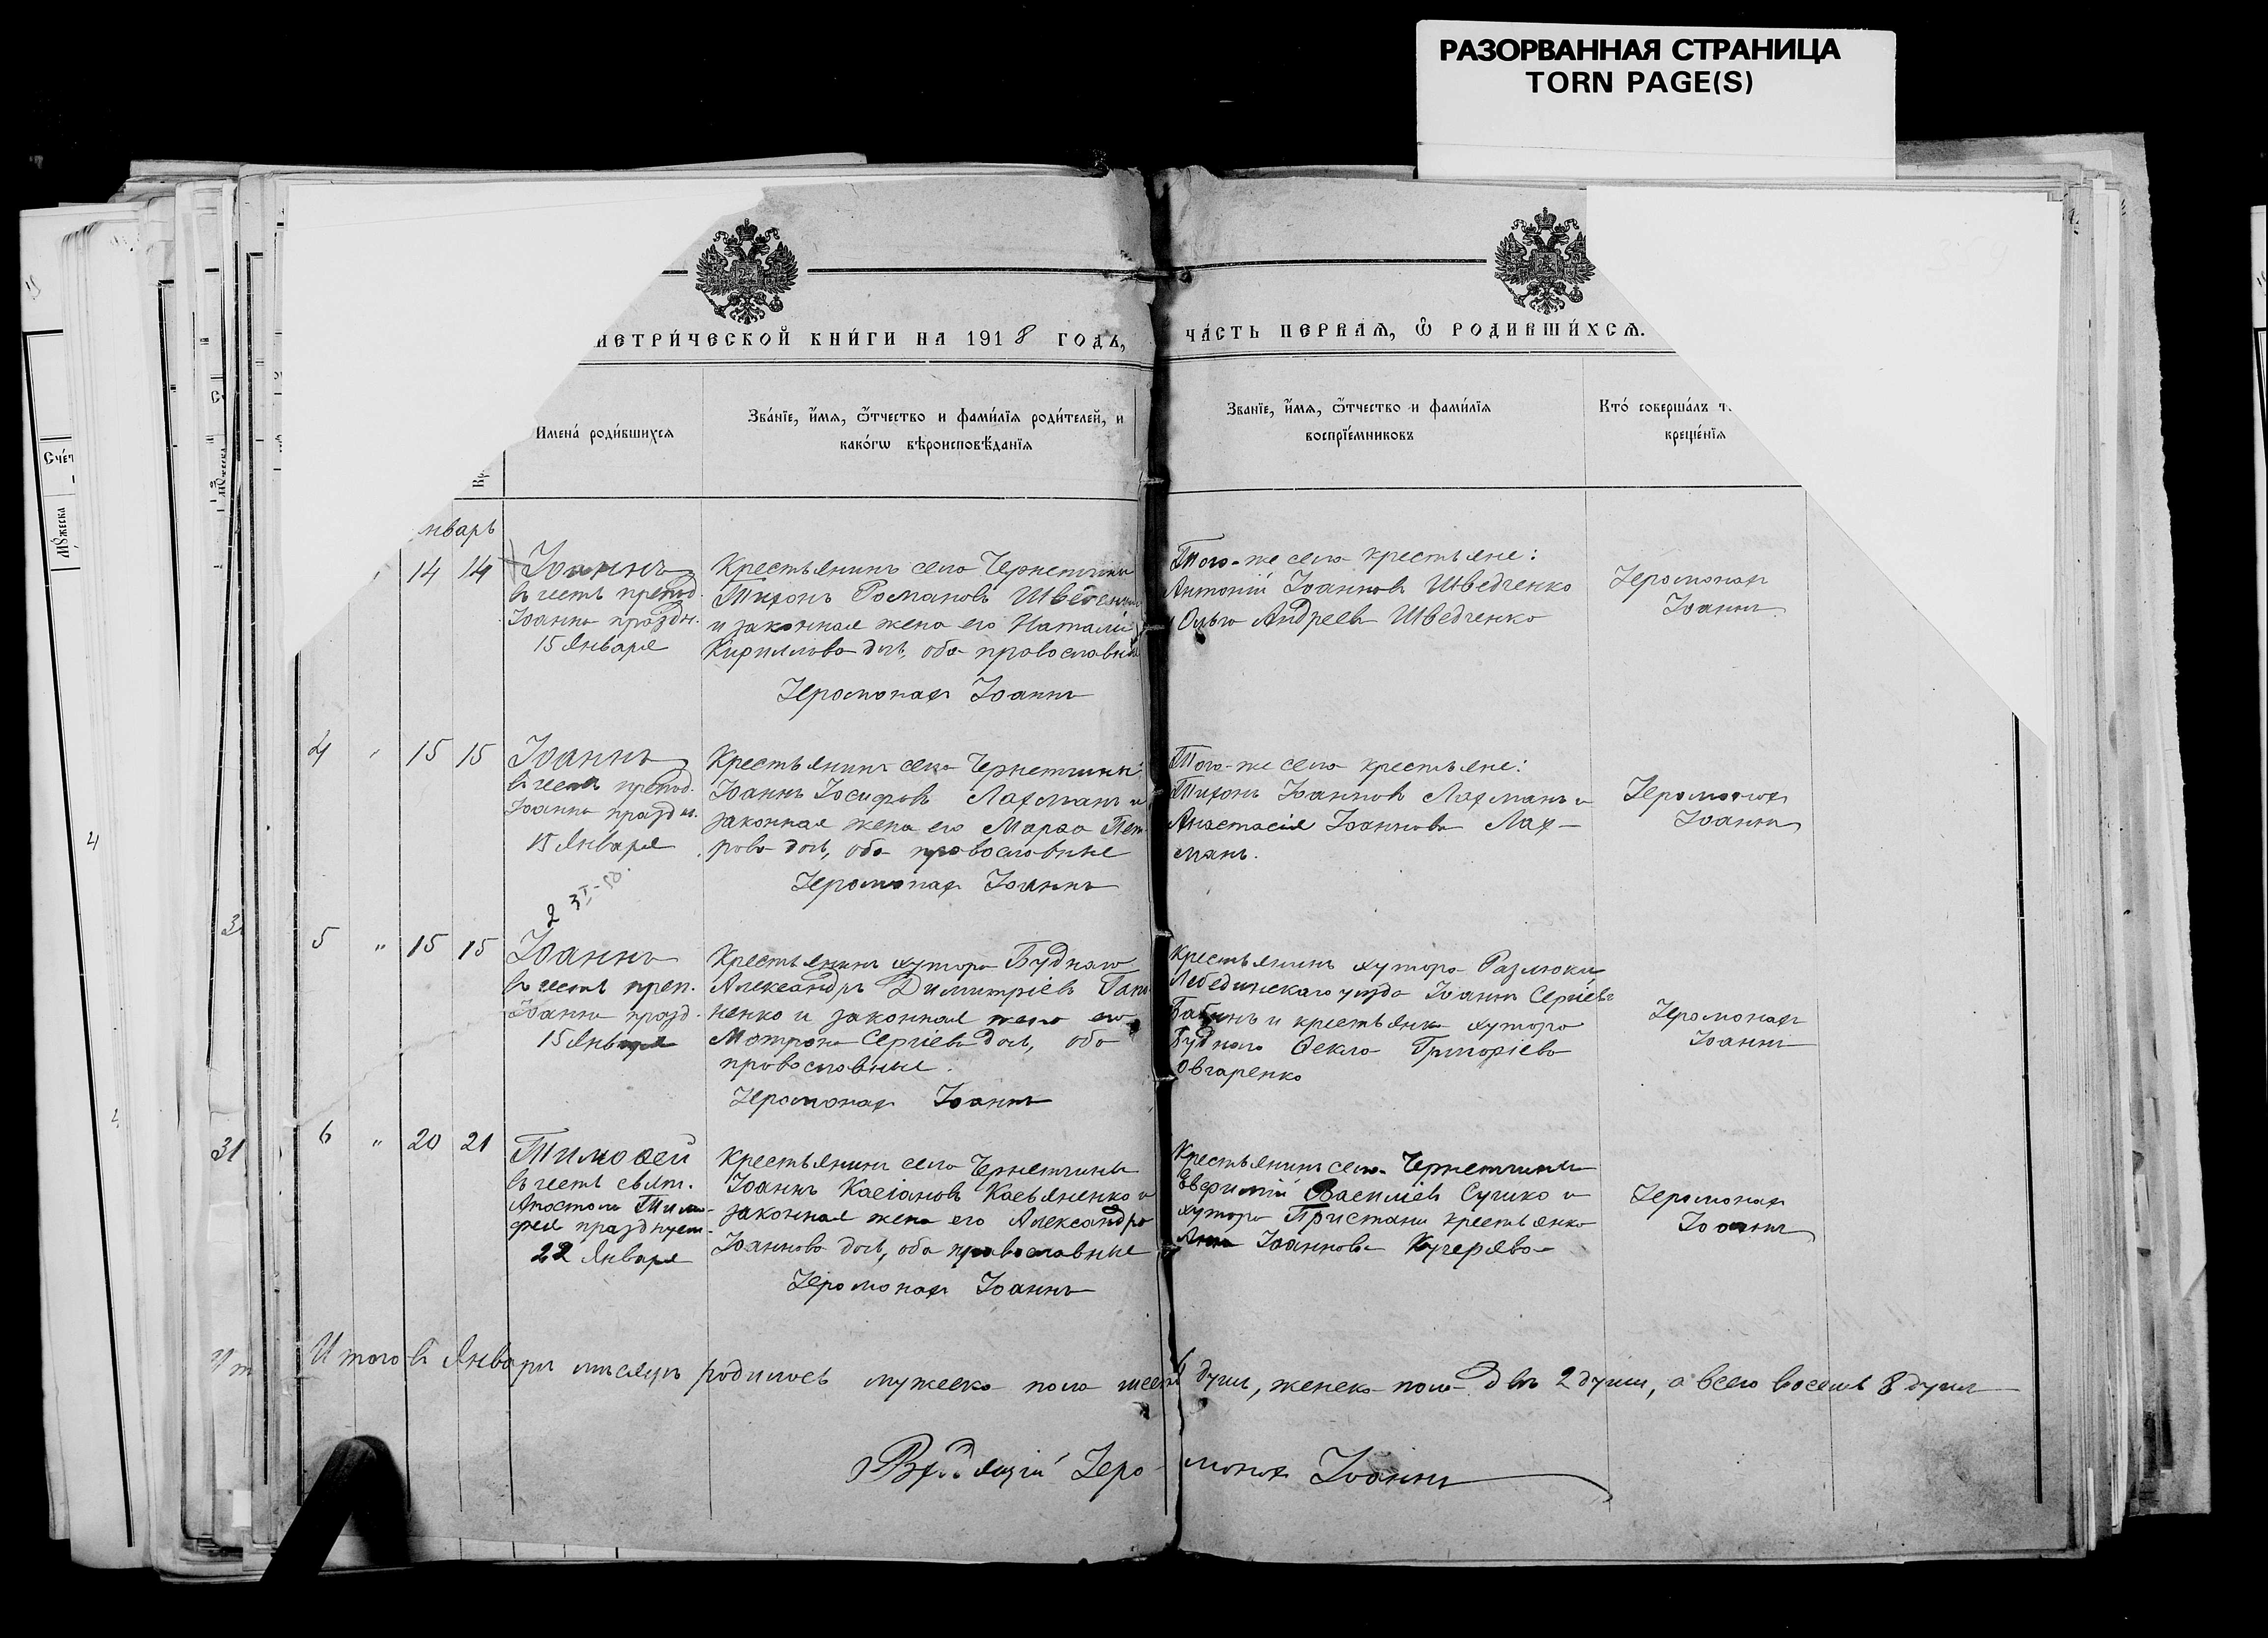 РАЗОРВАННАЯ СТРАНИЦА
TORN PAGE(S)
МЕТРИ́ЧЕСКОЙ КНИ́ГИ НА 1918 ГОДЪ,
ЧА́СТЬ ПЕРВАѦ, Ѿ РОДИВШИ́ХСѦ.
Имена̀ роди́вшихсѧ
Зва́нїе, и́мѧ, ѻ́тчество и фами́лїѧ роди́телей, и
како́гѡ вѣроисповѣ́данїѧ
Званїе, и́мѧ, ѻ́тчество и фами́лїѧ
воспрїе́мниковъ
Кто̀ соверша́лъ
креще́нїѧ
нварь
14 14
Іоаннъ
въ честь препод.
Іоанна праздн.
15 Января
Крестьянинъ села Чернетчины
Тихонъ Романовъ
и законная жена его Наталія
Кириллова дочь, оба православные
Іеромонах Іоаннъ
Того-же села крестьяне:
Антоній Іоаннов Шведченко
Ольга Андреева Шведченко
Іеромонах
Іоаннъ
4 15 15
Іоаннъ
въ честь препод.
Іоанна праздн.
15 Января
Крестьянинъ села Чернетчины
Іоаннъ Іосифовъ Лахманъ и
законная жена его Марфа Пет-
рова дочь, оба православные
Іеромонах Іоаннъ
Того-же села крестьяне:
Тихонъ Іоаннов Лахманъ и
Анастасія Іоаннова Лах-
манъ.
Іеромонах
Іоаннъ
5 " 15 15
Іоаннъ
въ честь преп.
Іоанна празд.
15 Января
Крестьянинъ хутора Буднаго
Александръ Димитріевъ
ненко и законная жена его
Матрона Сергіева дочь, оба
православные.
Іеромонах Іоаннъ
Крестьянинъ хутора
Лебединскаго уѣзда Іоаннъ Сергіевъ
и крестьянка хутора
Буднаго Ѳекла Григоріева
Овчаренко
Іеромонах
Іоаннъ
6 " 20 21
Тимоѳей
въ честь свят.
Апостола Тимо-
фея празднует.
22 Января
Крестьянинъ села Чернетчины
Іоаннъ Касіановъ Касьяненко и
законная жена его Александра
Іоаннова дочь, оба православные
Іеромонах Іоаннъ
Крестьянинъ села Чернетчины
Евфимій Василіев Сушко и
хутора Пристани крестьянка
Анна Іоаннова Кучерява
Іеромонах
Іоаннъ
Итого въ Январѣ мѣсяцѣ родилось мужеска пола шесть 6 душъ, женска пола двѣ 2 души, а всего восемь 8 душъ
Іеромонах Іоаннъ
4
31